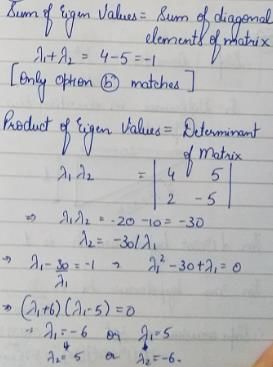 Sum of Eigen Values = Sum of diagonal
elements of matrix
λ₁+λ₂ = 4-5=-1
[Only option ⓑ matches]
Product of Eigen Values = Determinant
of Matrix
λ₁λ₂ = | 4 5 |
| 2 -5 |
⇒ λ₁λ₂ = -20-10 = -30
λ₂ = -30/λ₁
⇒ λ₁ - 30/λ₁ = -1 ⇒ λ₁² - 30 + λ₁ = 0
⇒ (λ₁+6)(λ₁-5) = 0
⇒ λ₁ = -6 or λ₁ = 5
↓ ↓
λ₂ = 5 or λ₂ = -6.